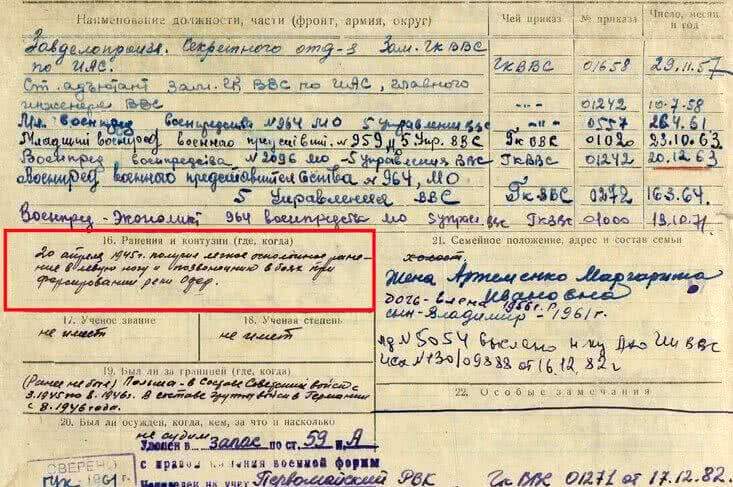 Наименование должности, части (фронт, армия, округ)
Чей приказ
№ приказа
Число, месяц и год
Завделопроизв. Секретного отд-я Зам. ГК ВВС
по ИАС.
ГК ВВС
01658
29.11.57
Ст. адъютант Зам. ГК ВВС по ИАС, главного
инженера ВВС
-"-
01242
10.7.58
Мл. военпред военпредства №964 МО 5 Управления ВВС
-"-
0557
26.4.61
Младший военпред военного представит. №959 5 Упр. ВВС
Гк ВВС
01020
23.10.63
Военпред военпредства №2096 МО-5 Управления ВВС
ГкВВС
01242
20.12.63
Военпред военного представительства №964, МО
5 Управления ВВС
Гк ВВС
0272
16.3.64.
Военпред-Экономист 964 военпредства МО 5 управ. ВВС
Гк ВВС
01000
19.10.71.
16. Ранения и контузии (где, когда)
20 апреля 1945г. получил легкое осколочное ране-
ние в левую ногу и позвоночник в боях при
форсировании реки Одер.
21. Семейное положение, адрес и состав семьи
холост
Жена Артеменко Маргарита
Ивановна
дочь-Елена 1956г.
сын-Владимир-1961г.
17. Ученое звание
не имеет
18. Ученая степень
не имеет
лд №5054 выслано
ВВС
исх №130/09888 от 16.12.82г
19. Был ли за границей (где, когда)
(Ранее не был) Польша - в составе Советских войск с
3.1945 по 8.1946г. В составе группы войск в Германии
с 8.1946 года.
22. Особые замечания
20. Был ли осужден, когда, кем, за что и насколько
не судим
Уволен в запас по ст. 59 п. А
с правом ношения военной формы
на учет Первомайский РВК
Гк ВВС 01271 от 17.12.82.
СВЕРЕНО